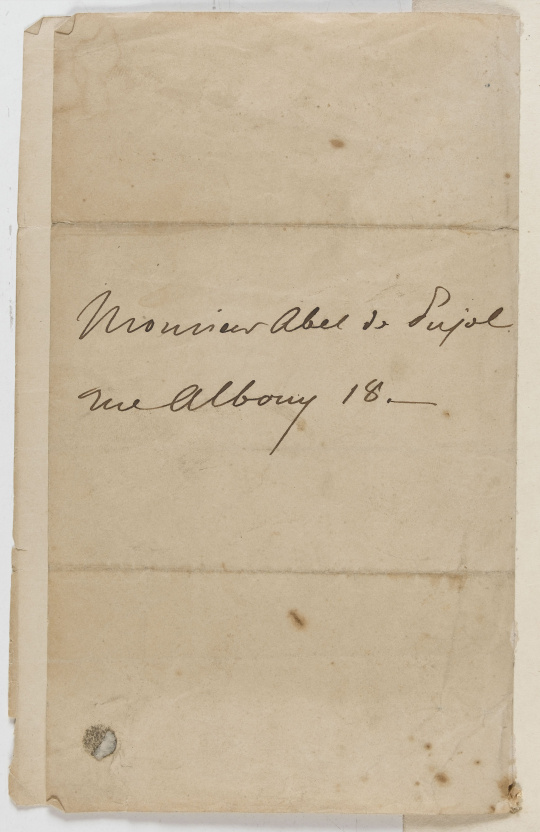 Monsieur Abel de Pujol
rue Albouy 18._